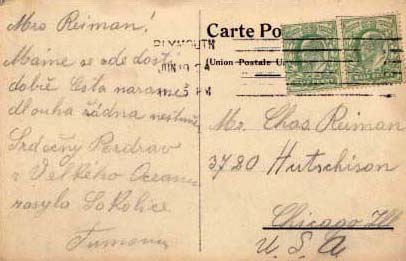 Mrs Reiman!
Máme se zde dosti
dobře Cesta narameš
dlouha žádna
Srdečny Pozdrav
z Velkého Oceanu
zasyla Sokolice
Carte Po
(Union Postale U
PLYMOUTH
JUN 19
5 PM
Mr. Chas. Reiman
3720 Hutschison
Chicago Ill
U. S. A